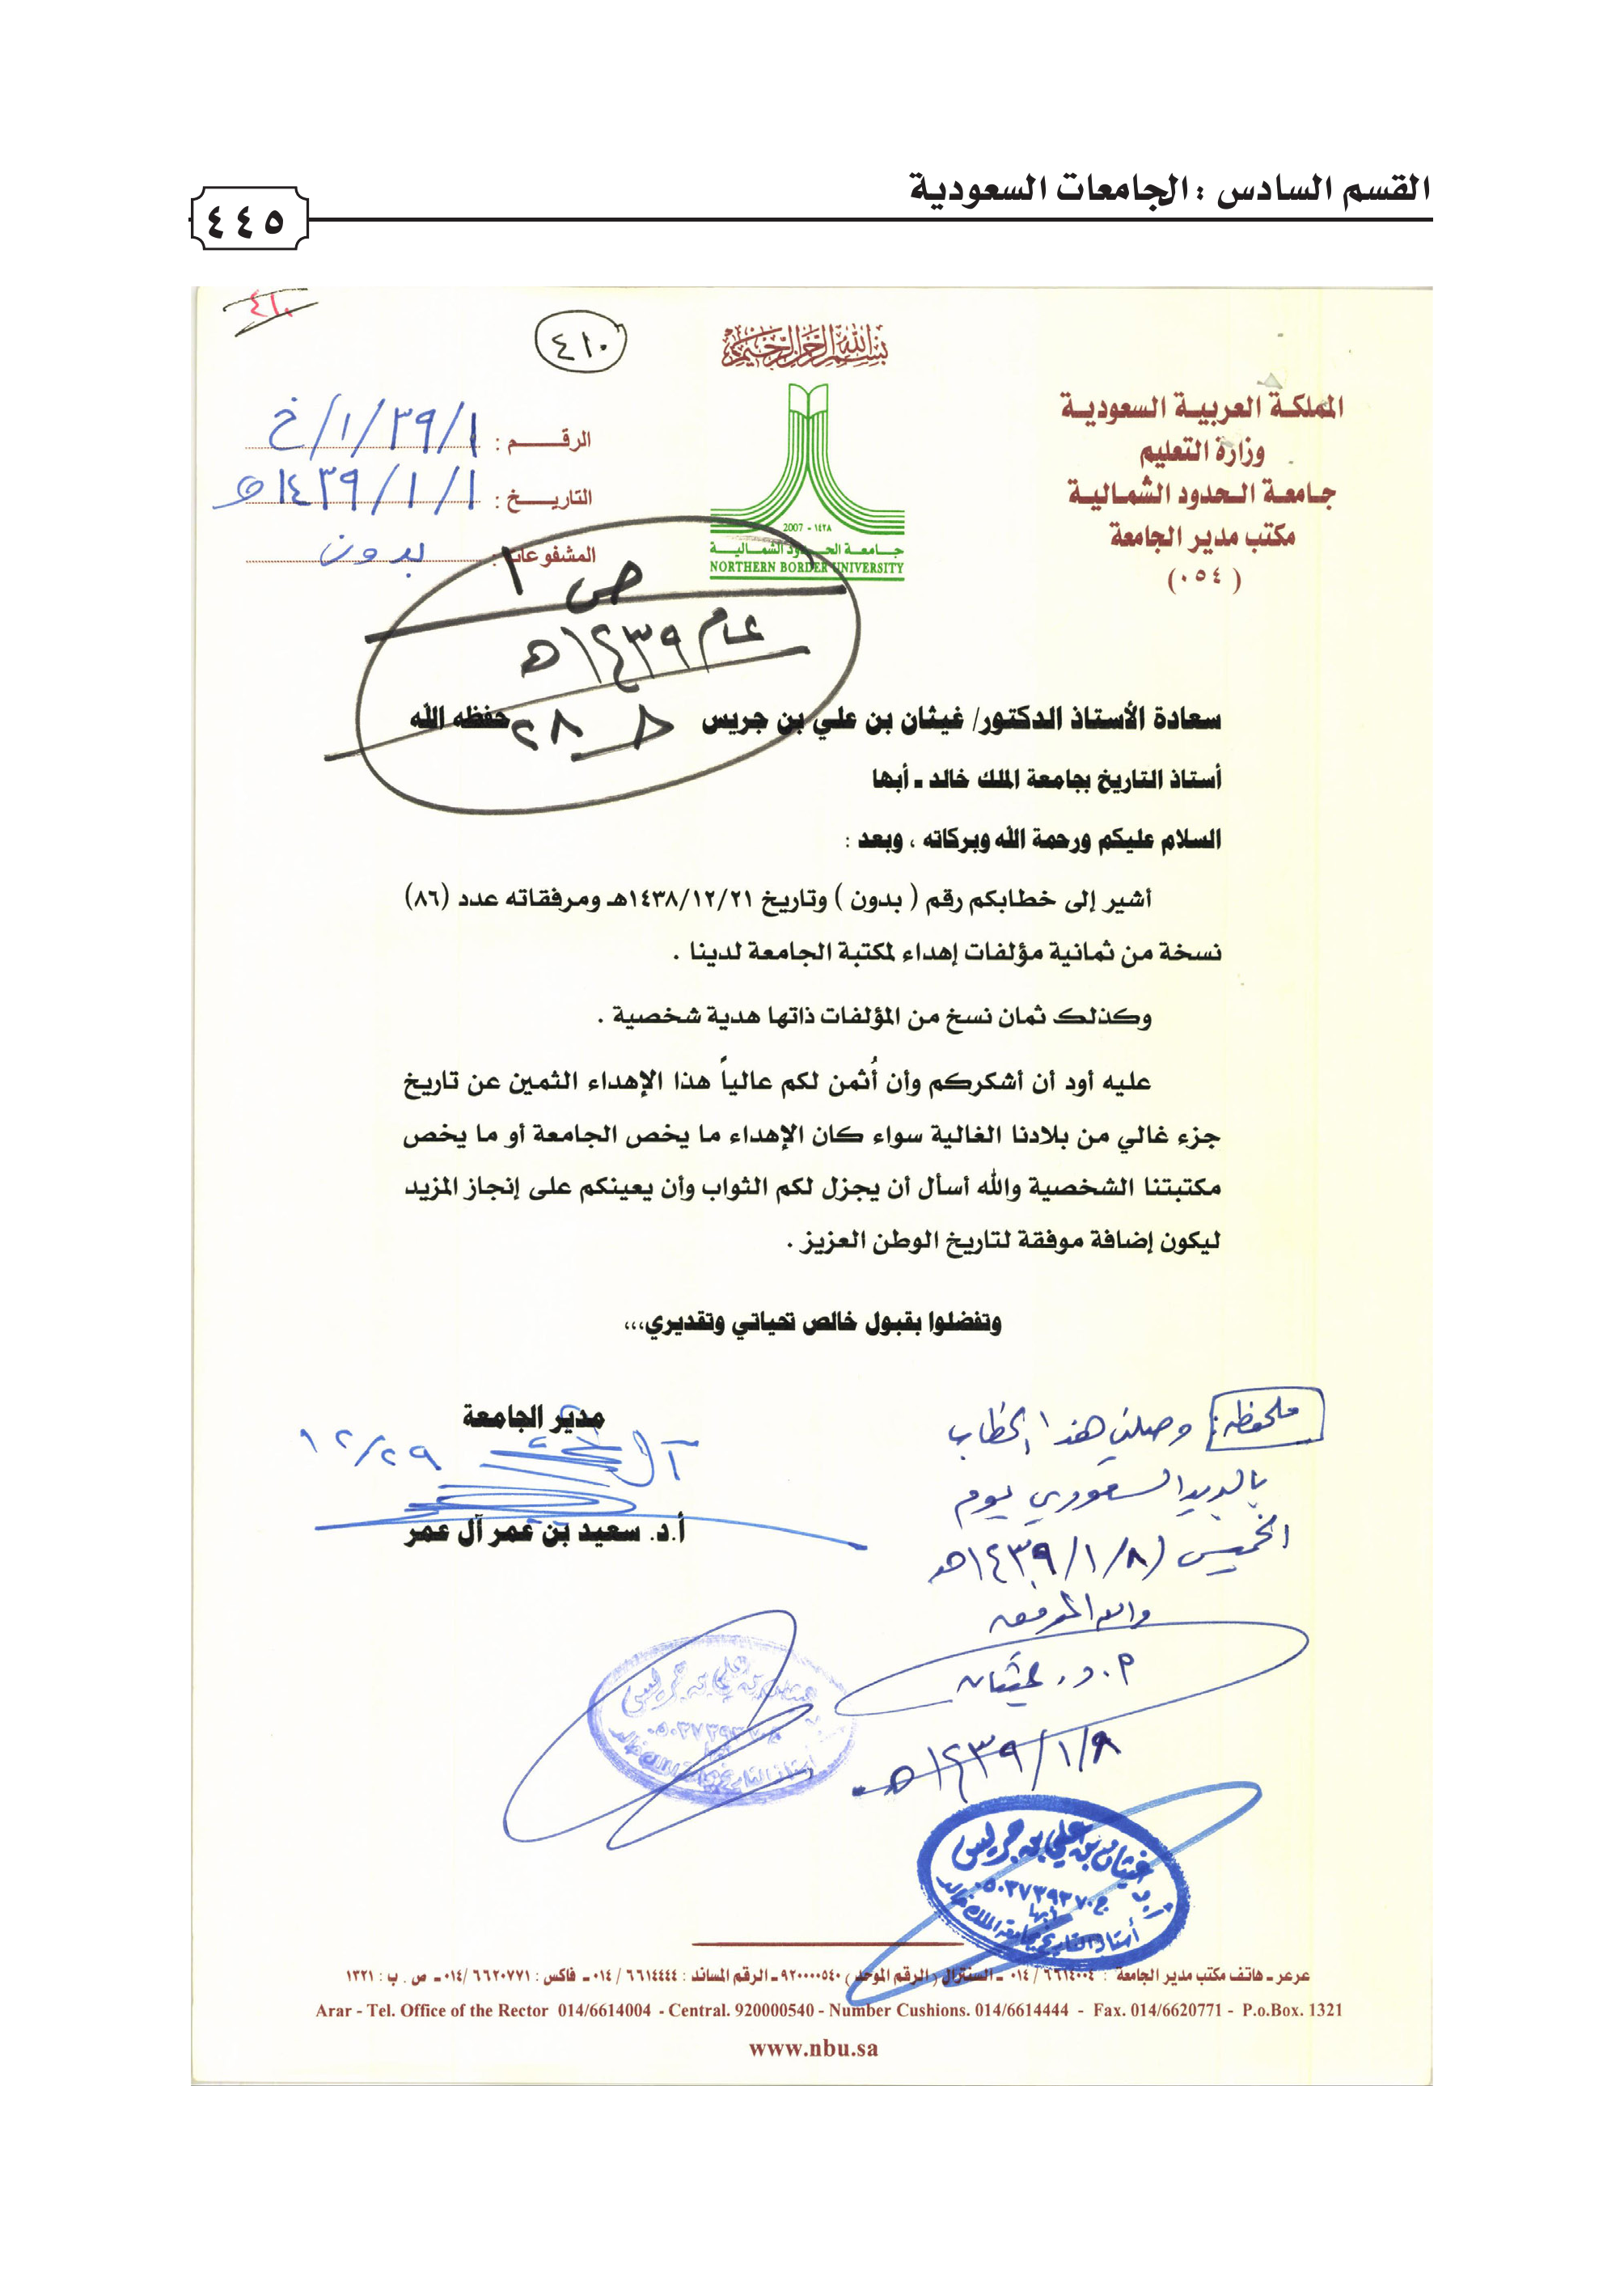 القسم السادس : الجامعات السعودية
٤٤٥
٤١٠
٤١٠
بسم الله الرحمن الرحيم
المملكة العربية السعودية
وزارة التعليم
جامعة الحدود الشمالية
مكتب مدير الجامعة
(٠٥٤)
2007 - ١٤٢٨
جامعة الحدود الشمالية
NORTHERN BORDER UNIVERSITY
الرقم : ١/٣٩/١/خ
التاريخ : ١/١/١٤٣٩هـ
المشفوعات : بدون
ص ١
عام ١٤٣٩هـ
سعادة الأستاذ الدكتور/ غيثان بن علي بن جريس حفظه الله
أستاذ التاريخ بجامعة الملك خالد ـ أبها
السلام عليكم ورحمة الله وبركاته ، وبعد :
أشير إلى خطابكم رقم ( بدون ) وتاريخ ١٤٣٨/١٢/٢١هـ ومرفقاته عدد (٨٦)
نسخة من ثمانية مؤلفات إهداء لمكتبة الجامعة لدينا .
وكذلك ثمان نسخ من المؤلفات ذاتها هدية شخصية .
عليه أود أن أشكركم وأن أُثمن لكم عالياً هذا الإهداء الثمين عن تاريخ
جزء غالي من بلادنا الغالية سواء كان الإهداء ما يخص الجامعة أو ما يخص
مكتبتنا الشخصية والله أسأل أن يجزل لكم الثواب وأن يعينكم على إنجاز المزيد
ليكون إضافة موفقة لتاريخ الوطن العزيز .
وتفضلوا بقبول خالص تحياتي وتقديري،،،
مدير الجامعة
١٢/٢٩
أ.د. سعيد بن عمر آل عمر
ملحوظة: وصلني هذا الخطاب
بالبريد السعودي يوم
الخميس (١٤٣٩/١/٨هـ
والله الموفق
أ.د. غيثان
١٤٣٩/١/٨هـ
غيثان بن علي بن جريس
ج ٠٥٠٣٧٣٩٣٧٠
أبها
أستاذ التاريخ بجامعة الملك خالد
عرعر ـ هاتف مكتب مدير الجامعة : ٦٦١٤٠٠٤ / ٠١٤ ـ السنترال ( الرقم الموحد ) ٩٢٠٠٠٠٥٤٠ ـ الرقم المساند : ٦٦١٤٤٤٤ / ٠١٤ ـ فاكس : ٦٦٢٠٧٧١ /٠١٤ ـ ص . ب : ١٣٢١
Arar - Tel. Office of the Rector 014/6614004 - Central. 920000540 - Number Cushions. 014/6614444 - Fax. 014/6620771 - P.o.Box. 1321
www.nbu.sa